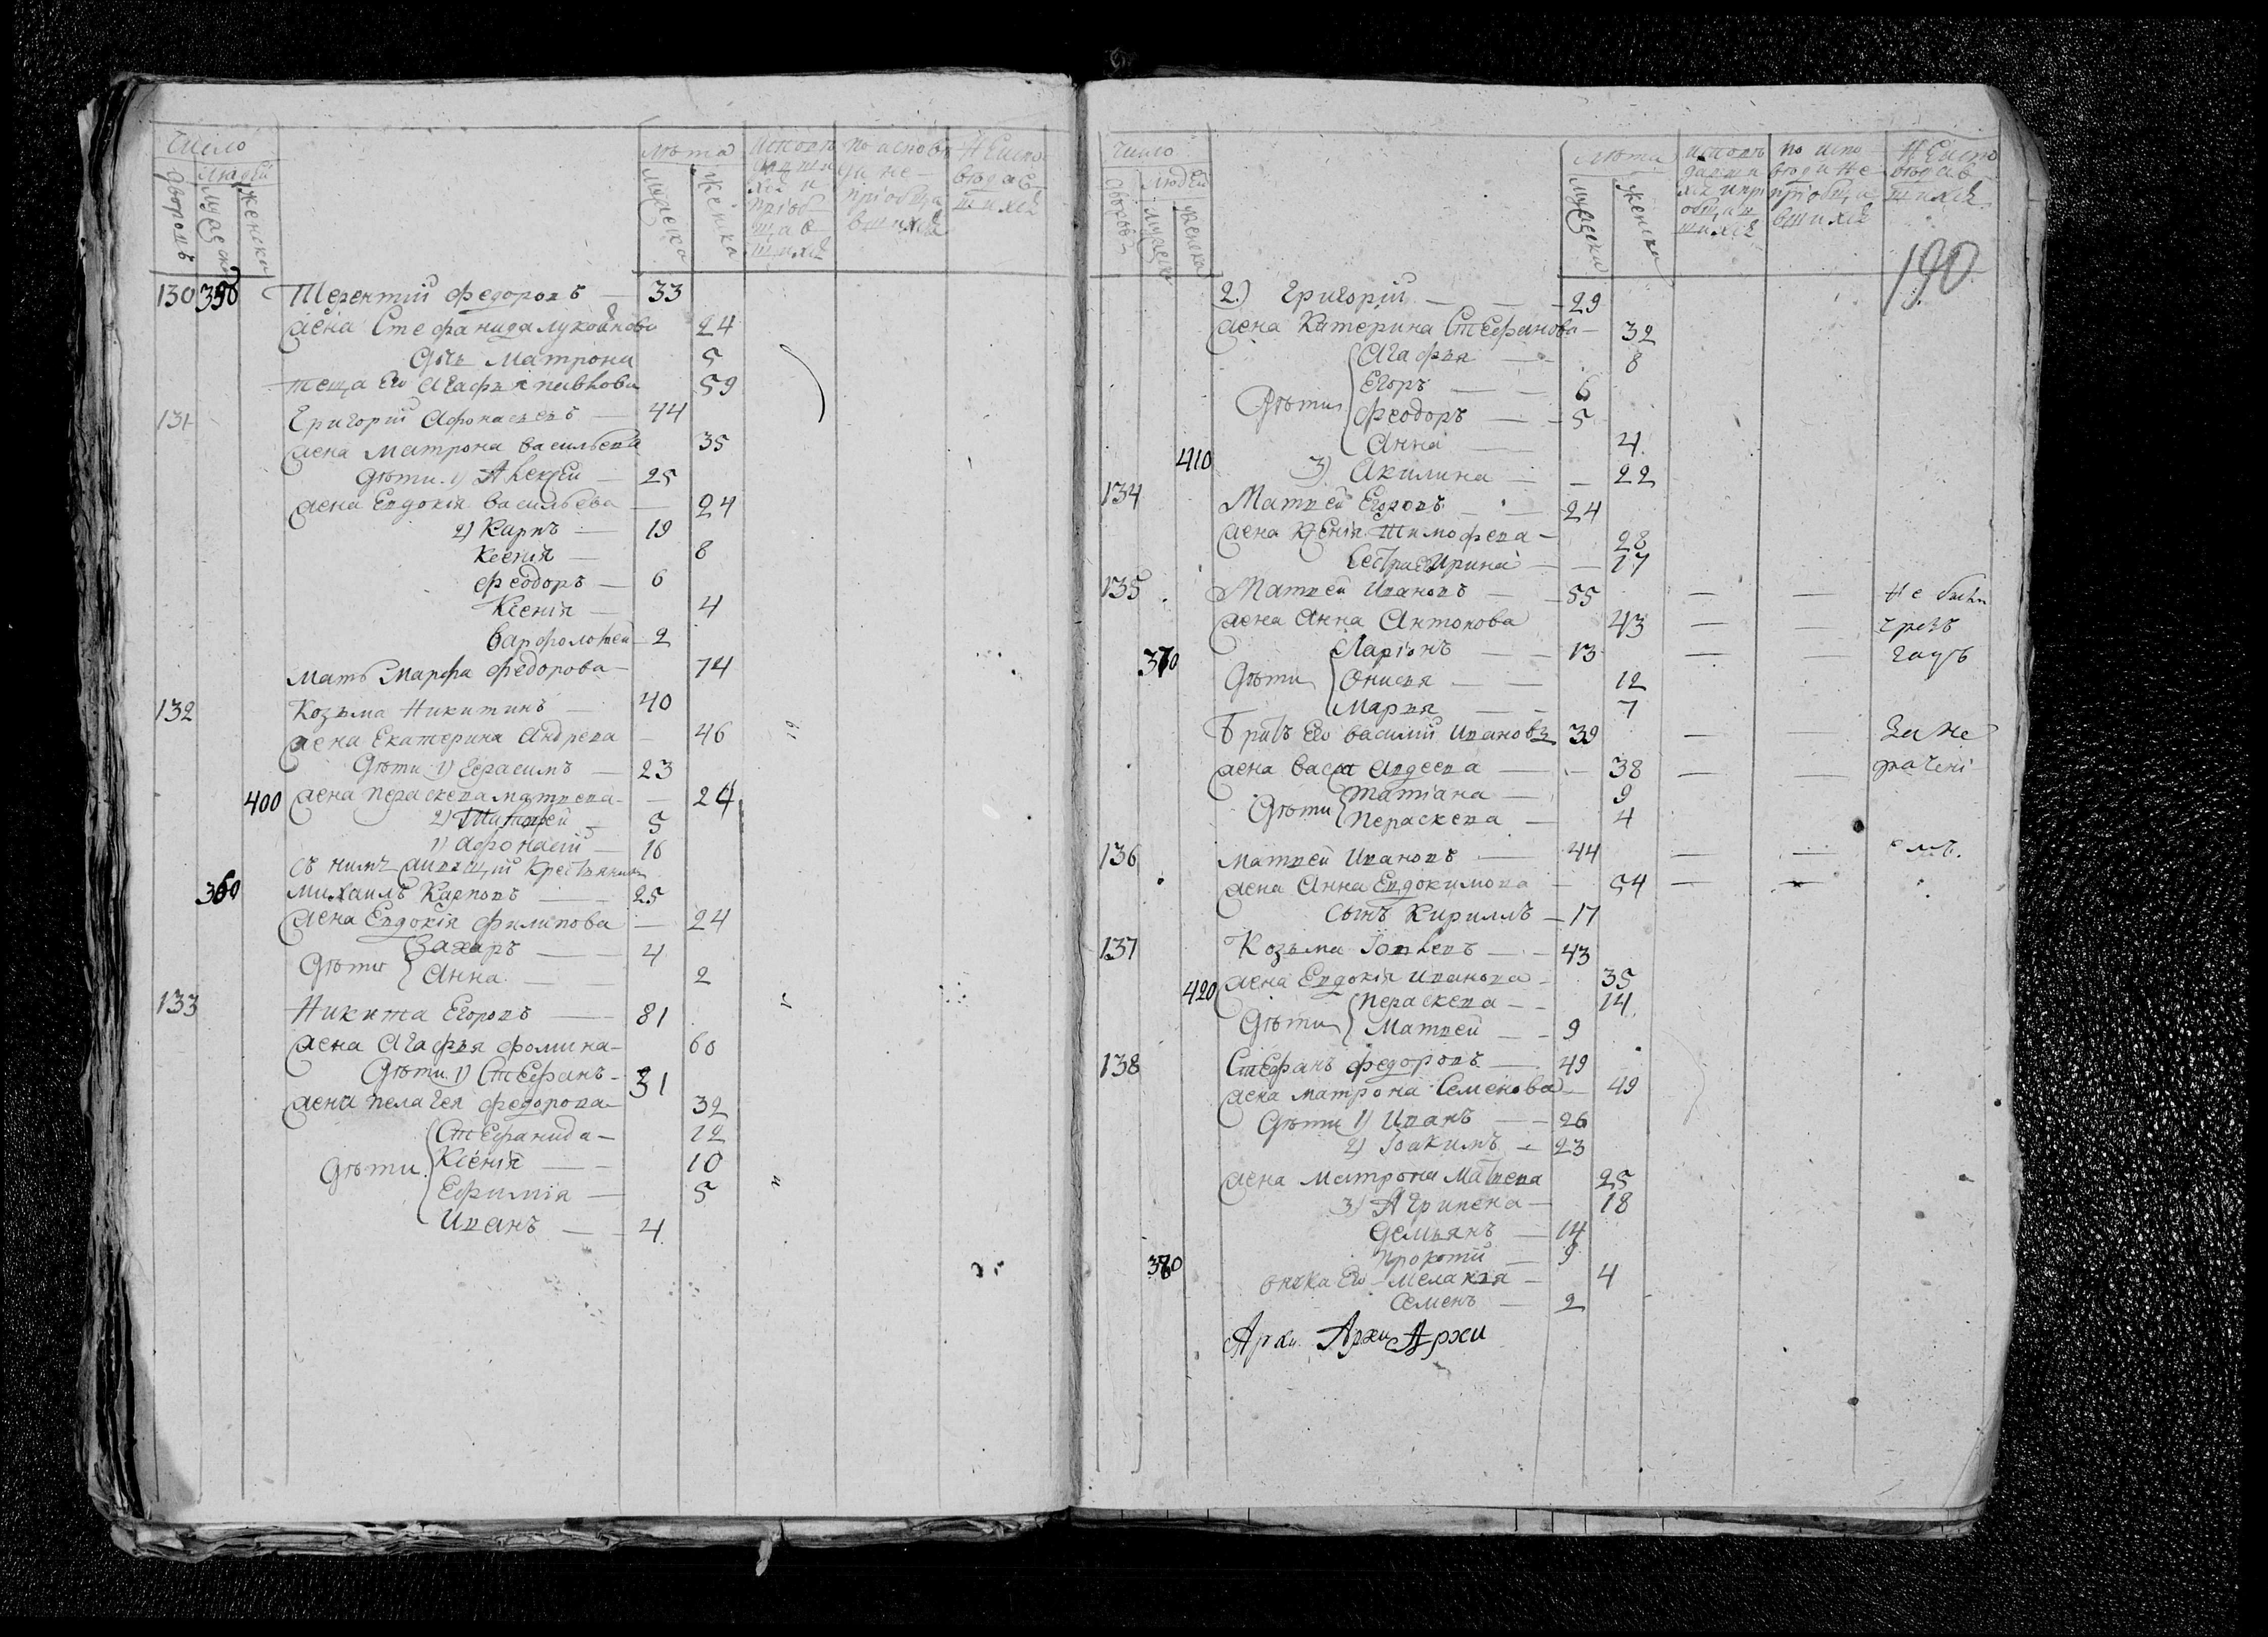 Число
Людей
дворовъ
мужеска
женска
лѣта
мужеска
женска
исповѣдавшихся и пріобщавшихся
по исповѣди не пріобщавшихся
не исповѣдавшихся
130 350 Терентий Федоровъ — 33
жена Стефанида Лукоянова 24
дочь Матрона 5
теща его Агафья Павлова 59
131 Григорий Афонасьевъ — 44
жена Матрона Васильева 35
дѣти. 1) Алексей — 25
жена Евдокия Васильева — 24
2) Карпъ — 19
Ксения — 8
Феодоръ — 6
Ксения — 4
Варфоломей — 2
мать Марфа Федорова — 74
132 Козьма Никитинъ — 40
жена Екатерина Андреева — 46
дѣти 1) Герасимъ — 23
400 жена Пераскева Матвеева — 24
2) 5
1) Афонасий — 16
съ нимъ живущий крестьянинъ
360 Михаилъ Карповъ — 25
жена Евдокия Филипова — 24
дѣти Захаръ — 4
Анна — 2
133 Никита Егоровъ — 81
жена Агафья Фомина — 60
дѣти 1) Стефанъ — 31
жена Пелагея Федорова — 32
Стефанида — 12
дѣти Ксения — 10
Ефимия — 5
Иванъ — 4
Число
Людей
дворовъ
мужеска
женска
лѣта
мужеска
женска
исповѣдавшихся и пріобщавшихся
по исповѣди не пріобщавшихся
не исповѣдавшихся
190
2) Григорий — 29
жена Катерина Стефанова — 32
Агафья — 8
Егоръ — 6
дѣти Феодоръ — 5
Анна — 4
410 3) Акилина — 22
134 Матвей Егоровъ — 24
жена Ксения Тимофеева — 28
сестра Ирина — 17
135 Матвей Ивановъ — 55 — — не были
жена Анна Антонова 43 — — чрезъ
370 Ларионъ — 13 — — годъ
дѣти Онисья — 12
Марья — 7
братъ его Василий Ивановъ 39 — за не
жена Васса Авдеева — 38 — — рачени
дѣти Татиана — 9
Пераскева — 4
136 Матвей Ивановъ — 44 — — емъ.
жена Анна Евдокимова — 54 — —
сынъ Кириллъ — 17
137 Козьма — 43
420 жена Евдокия Иванова — 35
Пераскева — 14
дѣти Матвей — 9
138 Стефанъ Федоровъ — 49
жена Матрона Семенова — 49
дѣти 1) Иванъ — 26
2) Иоакимъ — 23
жена Матрона Матвеева 25
3) Агрипена — 18
Демьянъ — 14
Прокопий — 9
380 внука его Мелания — 4
Семенъ — 2
Архи Архи Архи